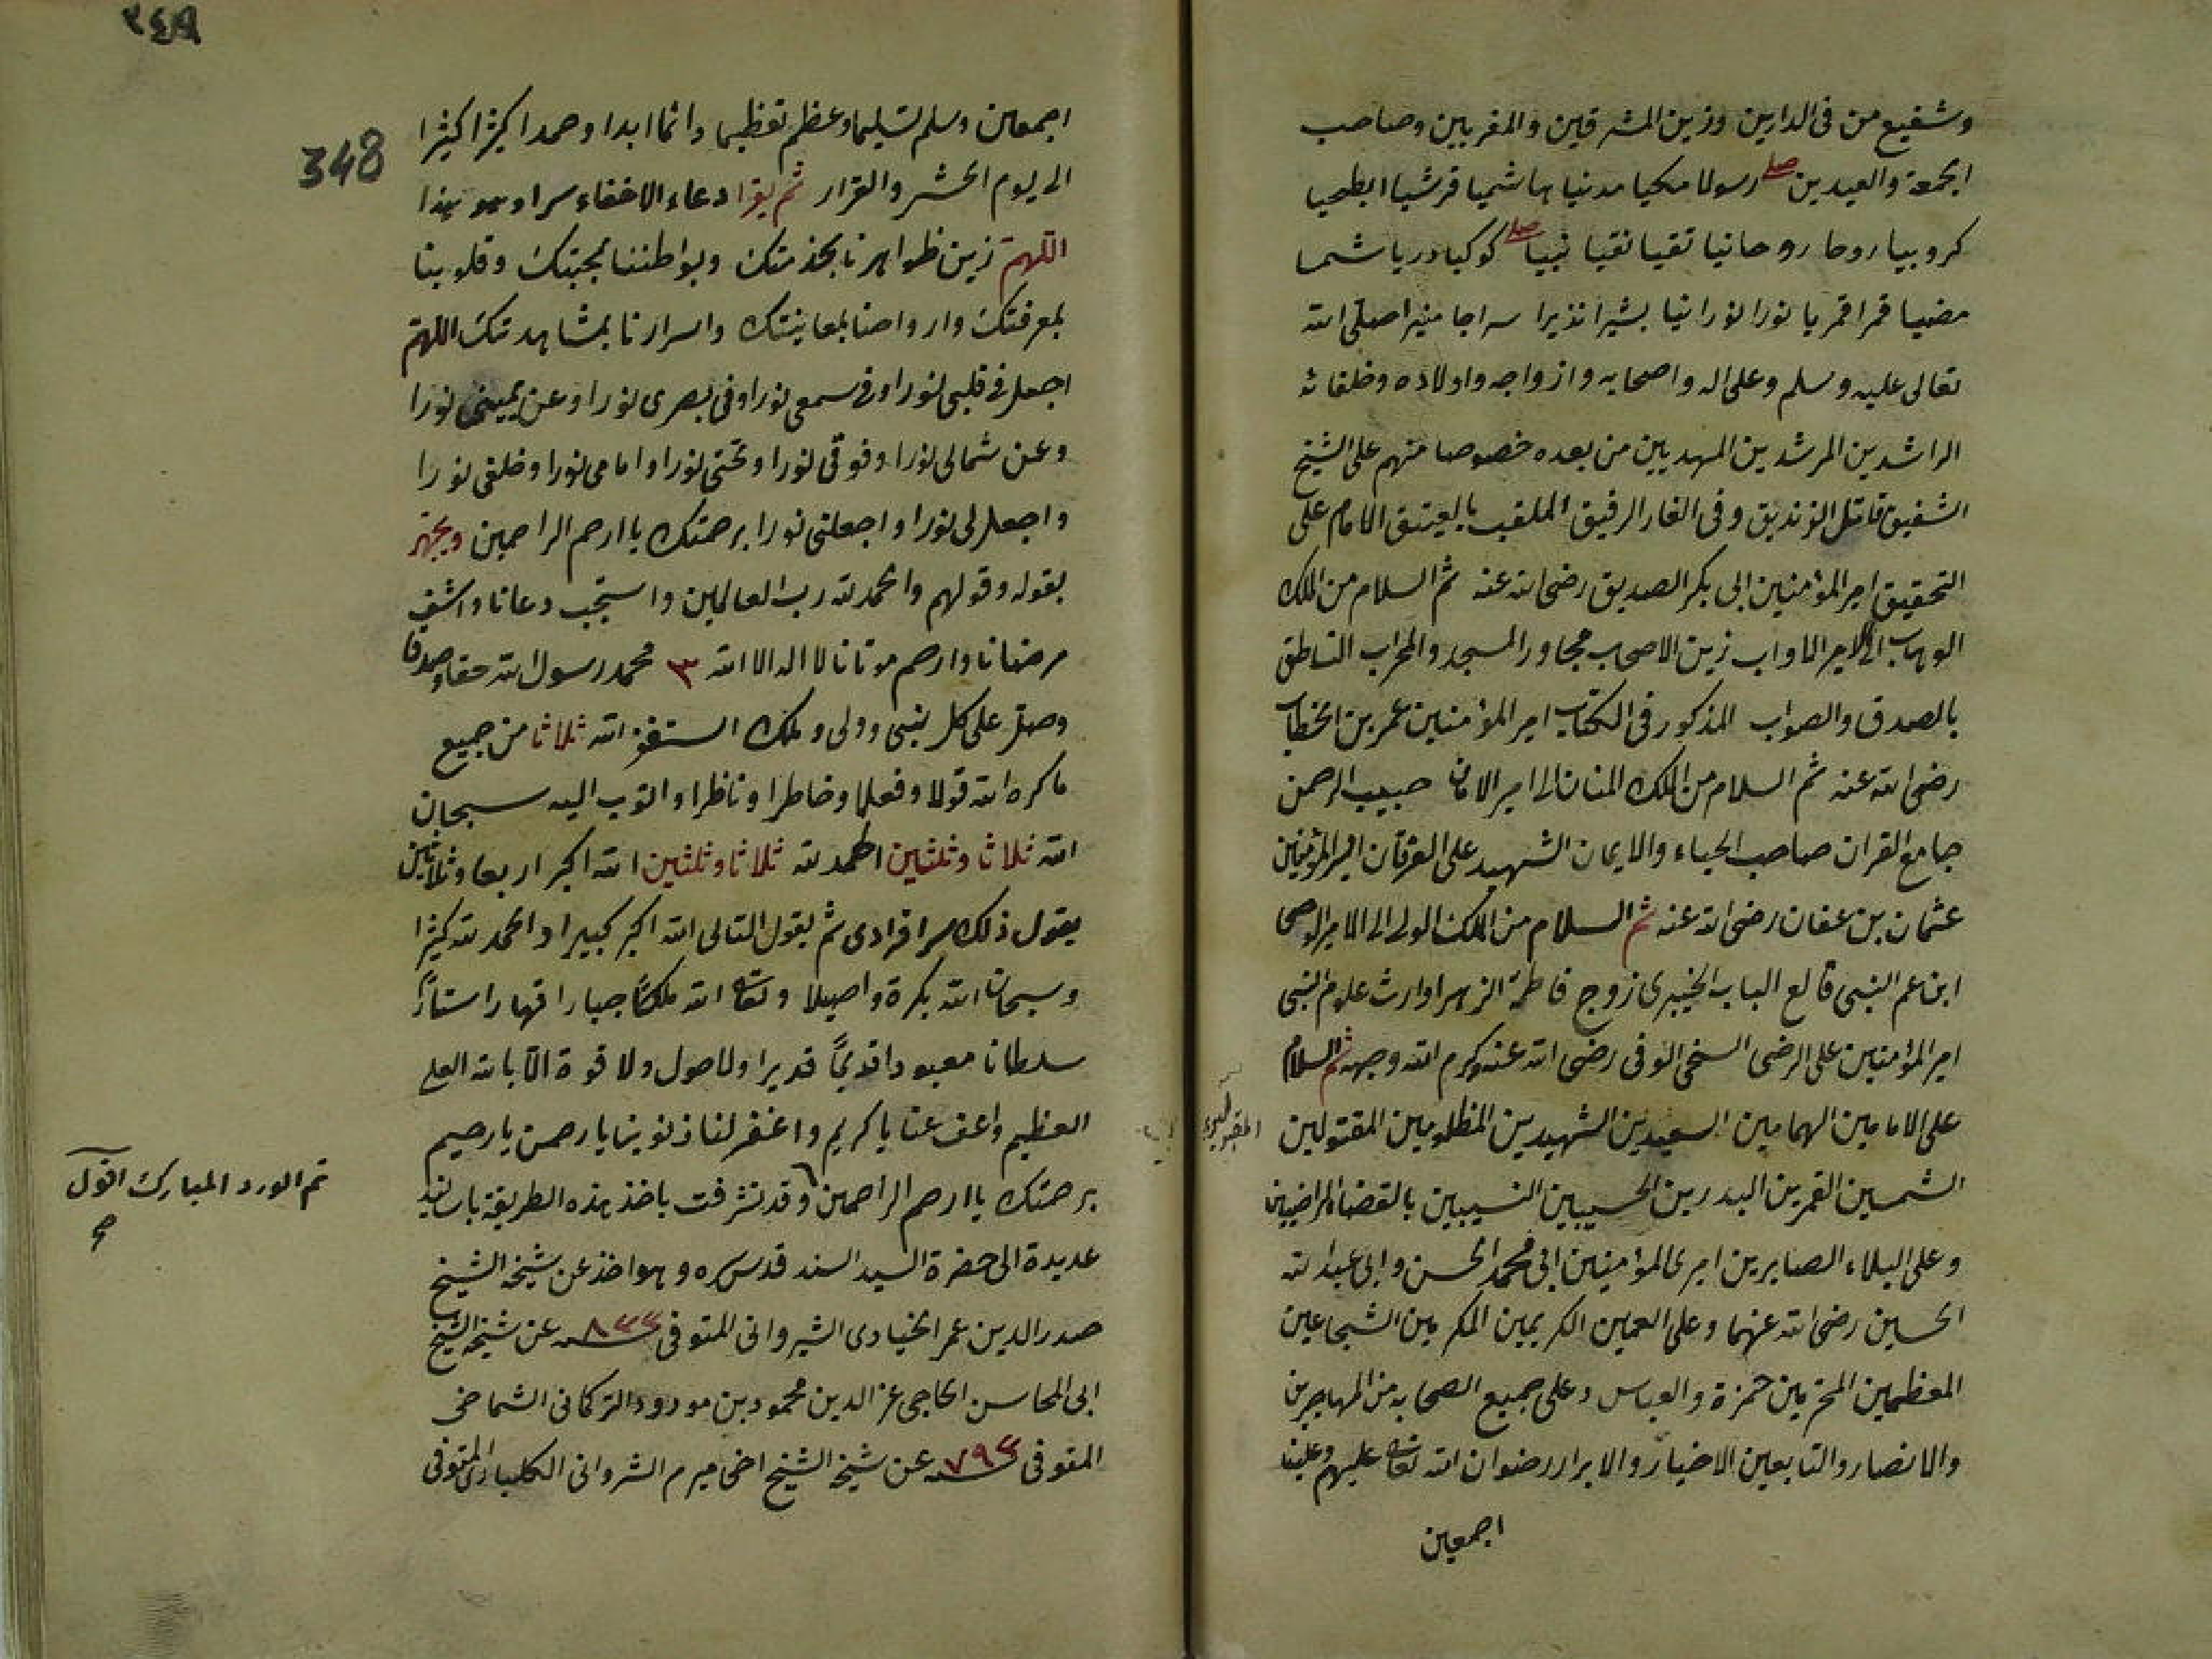 وشفيع من فى الدارين وزين المشرقين والمغربين وصاحب
الجمعة والعيدين صلے رسولا مكيا مدنيا هاشميا قرشيا ابطحيا
كروبيا روحا روحانيا تقيا نقيا نبيا صلے كوكبا دريا شمسا
مضيا قمرا قمريا نورا نورانيا بشيرا نذيرا سراجا منيرا صلى الله
تعالى عليه وسلم وعلى اله واصحابه وازواجه واولاده وخلفائه
الراشدين المرشدين المهديين من بعده خصوصا منهم على الشيخ
الشفيق قاتل الزنديق وفى الغار الرفيق الملقب بالعتيق الامام على
التحقيق امير المؤمنين ابى بكر الصديق رضى الله عنه ثم السلام من الملك
الوهاب الى الامير الاواب زين الاصحاب مجاور المسجد والمحراب الناطق
بالصدق والصواب المذكور فى الكتاب امير المؤمنين عمر بن الخطاب
رضى الله عنه ثم السلام من الملك المنان الى امير الامان حبيب الرحمن
جامع القران صاحب الحياء والايمان الشهيد على الفرقان امير المؤمنين
عثمان بن عفان رضى الله عنه ثم السلام من الملك الولى الى الامير الوصى
ابن عم النبى قالع الباب الخيبرى زوج فاطمة الزهرا وارث علوم النبى
امير المؤمنين على الرضى السخى الوفى رضى الله عنه وكرم الله وجهه ثم السلام
على الامامين الهمامين السعيدين الشهيدين المظلومين المقتولين
الشمسين القمرين البدرين الحسيبين النسيبين بالقضا الراضيين
وعلى البلاء الصابرين اميرى المؤمنين ابى محمد الحسن وابى عبد الله
الحسين رضى الله عنهما وعلى العمين الكريمين المكرمين الشجاعين
المعظمين المحترمين حمزة والعباس وعلى جميع الصحابه من المهاجرين
والانصار والتابعين الاخيار والابرار رضوان الله تعالى عليهم وعلينا
اجمعين
٣٤٩
348
اجمعين وسلم تسليما وعظم تعظيما دائما ابدا وحمدا كثيرا كثيرا
الى يوم الحشر والقرار ثم يقرا دعاء الاخفاء سرا وهو هذا
اللهم زين ظواهرنا بخدمتك وبواطننا بمحبتك وقلوبنا
بمعرفتك وارواحنا بمعاينتك واسرارنا بمشاهدتك اللهم
اجعل فى قلبى نورا وفى سمعى نورا وفى بصرى نورا وعن يمينى نورا
وعن شمالى نورا وفوقى نورا وتحتى نورا وامامى نورا وخلفى نورا
واجعل لى نورا واجعلنى نورا برحمتك يا ارحم الراحمين ويجهر
بقوله وقولهم والحمد لله رب العالمين واستجب دعانا واشف
مرضانا وارحم موتانا لا اله الا الله ٣ محمد رسول الله حقا وصدقا
وصل على كل نبى وولى وملك استغفر الله ثلاثا من جميع
ما كره الله قولا وفعلا وخاطرا وناظرا واتوب اليه سبحان
الله ثلاثا وثلثين الحمد لله ثلاثا وثلثين الله اكبر اربعا وثلاثين
يقول ذلك سرا فرادى ثم يقول التالى الله اكبر كبيرا والحمد لله كثيرا
وسبحان الله بكرة واصيلا وتعالى الله ملكًا جبارا قهارا ستارًا
سلطانا معبودا قديمًا قديرا ولا حول ولا قوة الا بالله العلى
العظيم واعف عنا يا كريم واغفر لنا ذنوبنا يا رحمن يا رحيم
برحمتك يا ارحم الراحمين وقد تشرفت باخذ هذه الطريقة باسانيد
تم الورد المبارك اقول
عديدة الى حضرة السيد السند قدس سره وهو اخذ عن شيخه الشيخ
صدر الدين عمر الخيادى الشيروانى المتوفى عن شيخه الشيخ
ابى المحاسن الحاجى عز الدين محمود بن مودود التركمانى الشماخى
المتوفى عن شيخه الشيخ اخى ميرم الشروانى الكليبارى المتوفى